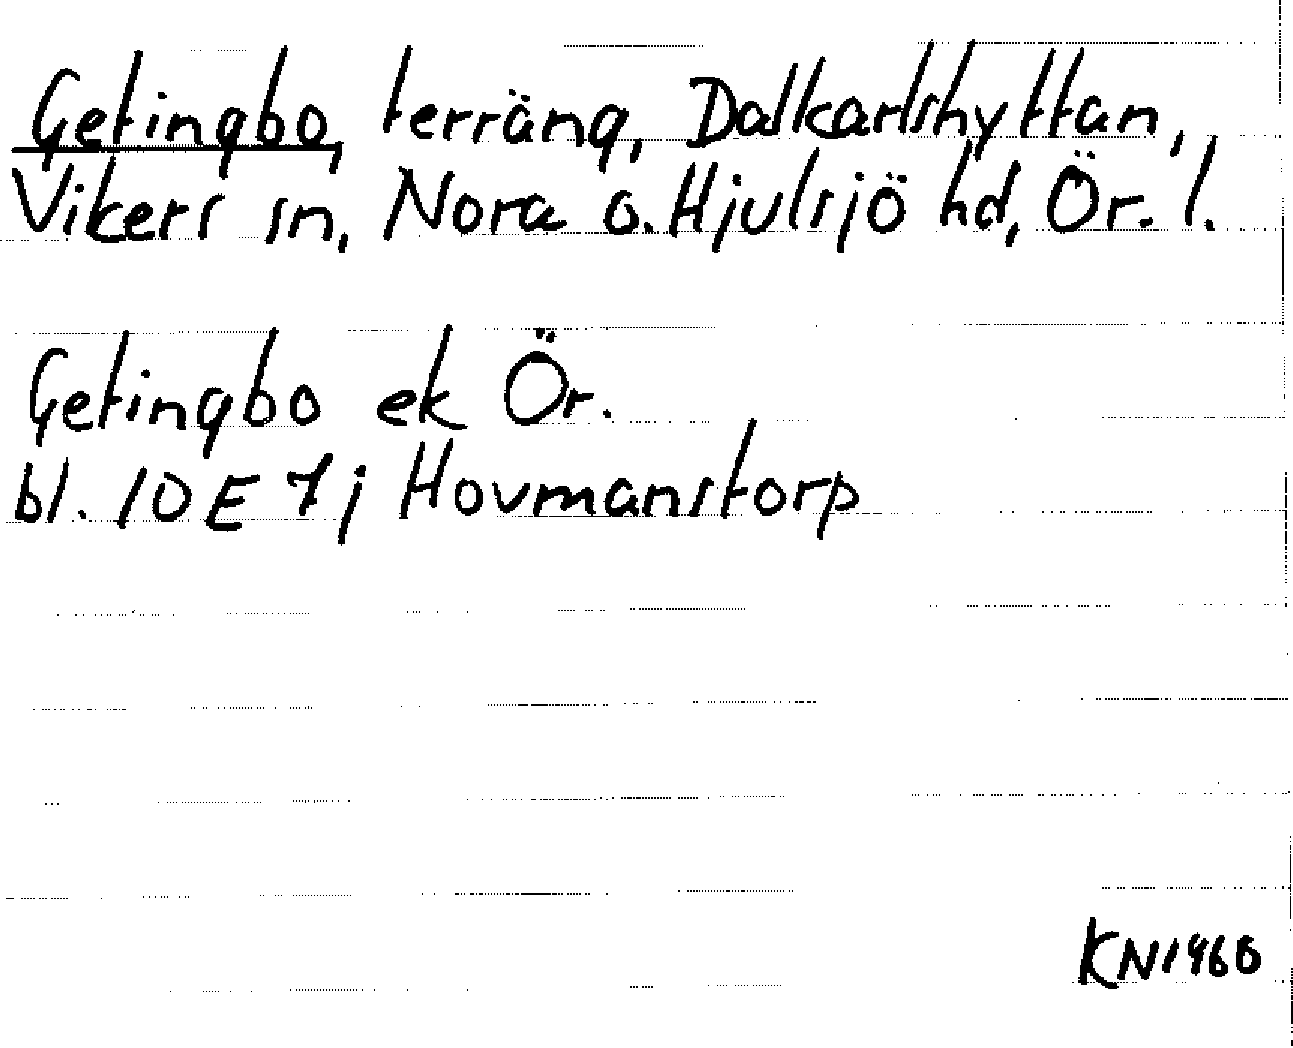 Getingbo, terräng, Dalkarlshyttan,
Vikers sn, Nora o. Hjulsjö hd, Ör. l.
Getingbo ek Ör.
bl. 10E 7j Hovmanstorp
KN 1960